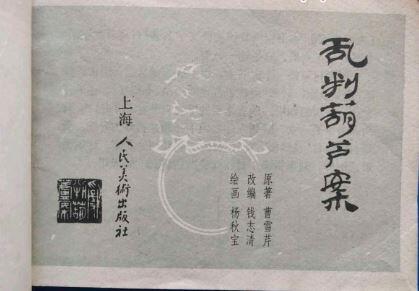 乱判葫芦案
原著 曹雪芹
改编 钱志清
绘画 杨秋宝
上海人民美術出版社